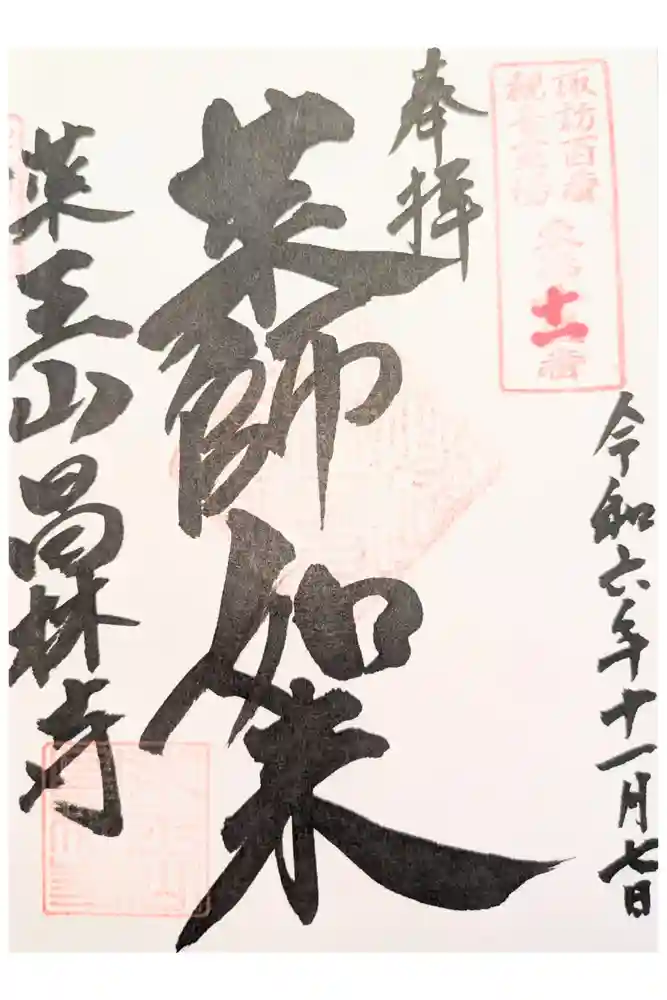 諏訪百番
観音霊場
東
十一番
奉拝
令和六年十一月七日
薬師如来
薬王山昌林寺